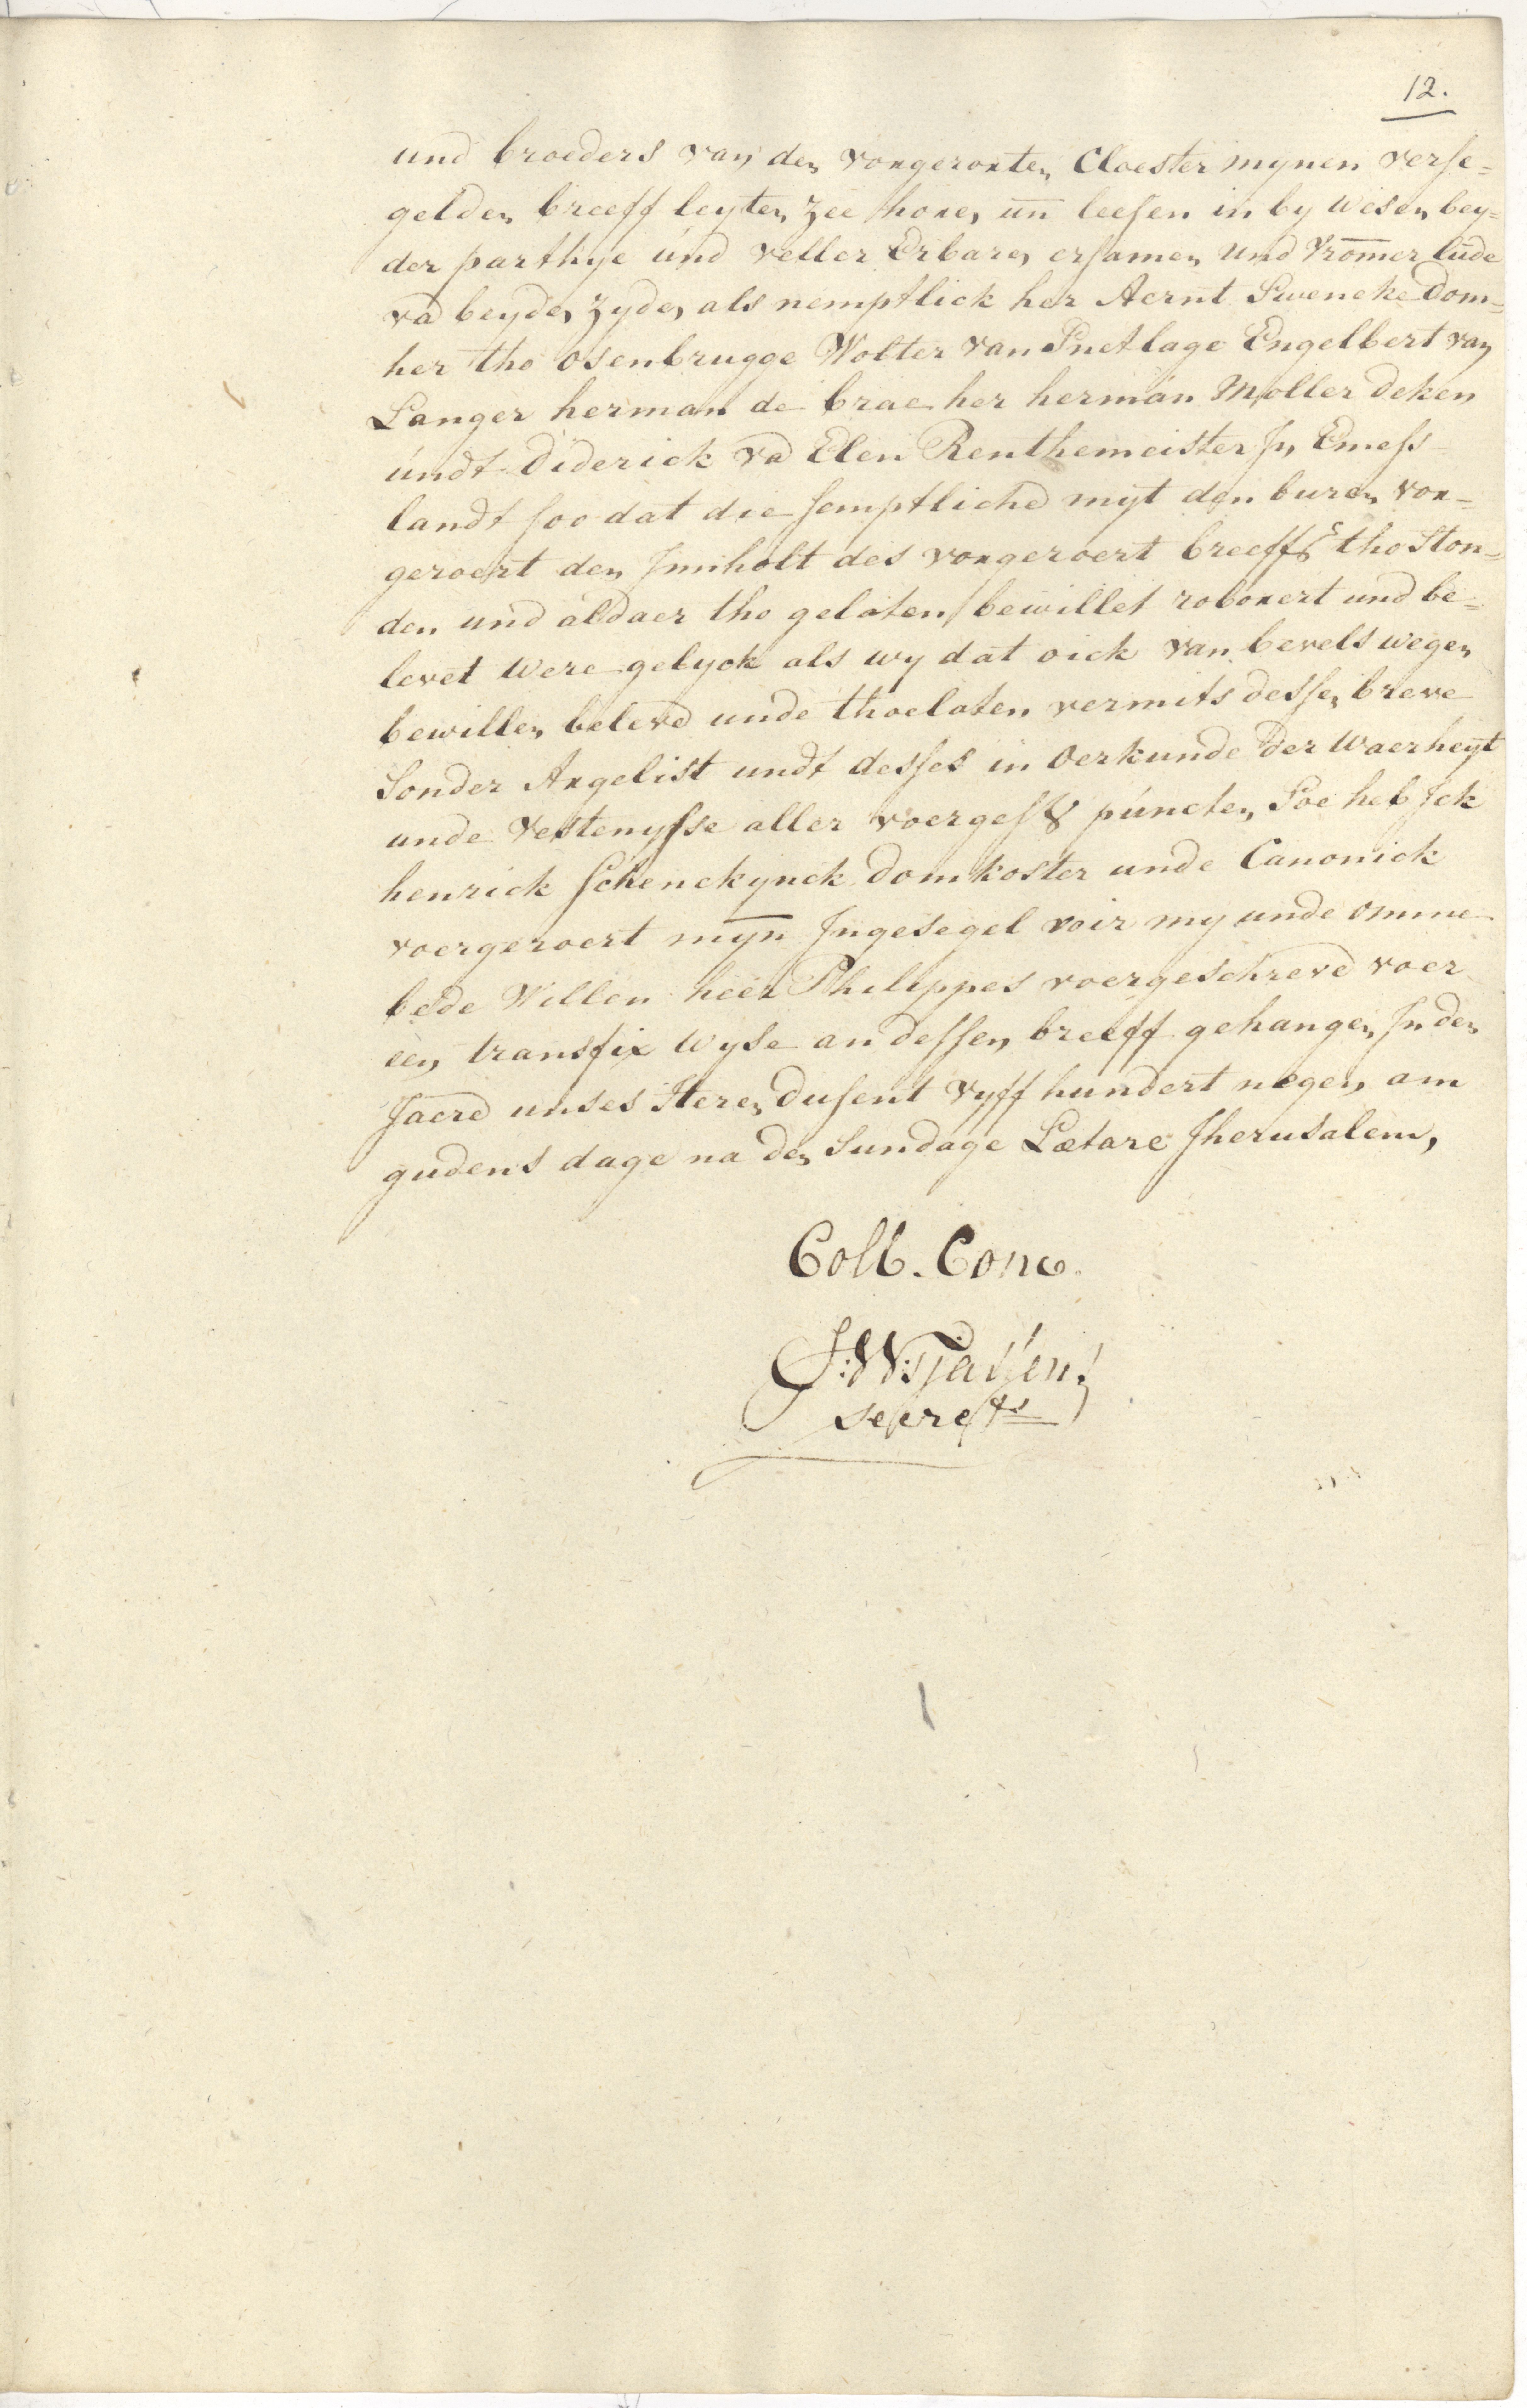 12.
und broeders van den vorgerorten Cloester mynen verse=
gelden breeff leyten zee horen un̄ leesen in by wesen bey=
der parthye und veller Erbaren ersamen und vrom̄er lude
vā beyden zyden als nemptlick her Aernt Sweneke Dom=
her tho osenbrugge Wolter van Snetlage Engelbert van
Langer herman de brae her herman Moller deken
undt Diderick vā Elen Renthemeister In Emess
landt soo dat die semptlichē myt den buren vor=
geroert den Innholt des vorgeroert breeffs tho ston=
den und aldaer tho gelaten bewillet roborert und be=
levet were gelyck als wy dat oick van bevels wegen
bewillen belevē unde thoelaten vermits dessen breve
Sonder Argelist undt desses in Oerkunde der Waerheyt
unde Vestenysse aller voergess puncten Soe heb Ick
henrick Schenckynck domkoster unde Canonick
voergeroert myn Ingesegel voir my unde omme
bede Willen heer Philippes voergeschrevē voer
een transfix wyse an dessen breeff gehangen In den
Jaerē unses Heren dusent vyff hundert negen am
gudens dage na den Sundage Lætare Jherusalem,
Coll. Conc.
J:W:Tjassens
secrets